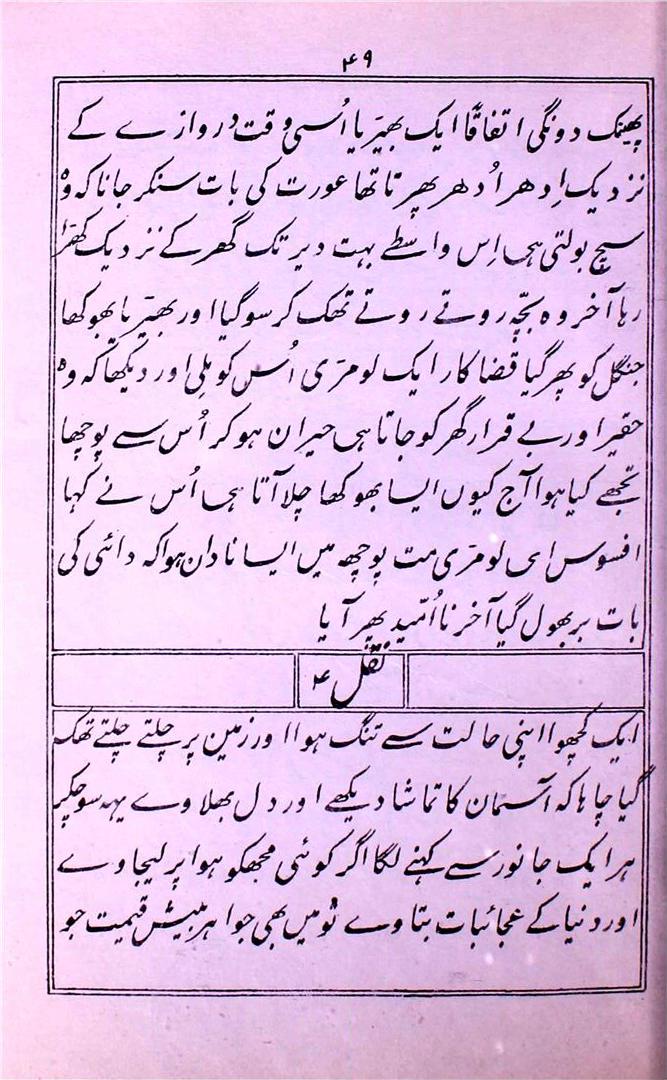 ۴۹
پھینک دونگی اتفاقًا ایک بھیڑیا اُسی وقت دروازے کے
نزدیک اِدھر اُدھر پھرتا تھا عورت کی بات سنکر جانا کہ وہ
سچ بولتی ہی اِس واسطے بہت دیر تک گھر کے نزدیک کھڑا
رہا آخر وہ بچّہ روتے روتے تھک کر سوگیا اور بھیڑیا بھوکھا
جنگل کو پھر گیا قضا کار ایک لومڑی اُس کو ملی اور دیکھا کہ وہ
حقیر اور بے قرار گھر کو جاتا ہی حیران ہو کر اُس سے پوچھا
تجھے کیا ہوا آج کیوں ایسا بھوکھا چلا آتا ہی اُس نے کہا
افسوس ای لومڑی مت پوچھ میں ایسا نادان ہوا کہ دائی کی
بات پر بھول گیا آخر نااُمّید پھر آیا
نقل ۴
ایک کچھوا اپنی حالت سے تنگ ہوا اور زمین پر چلتے چلتے تھک
گیا چاہا کہ آسمان کا تماشا دیکھے اور دل بھلاوے یہہ سوچکر
ہر ایک جانور سے کہنے لگا اگر کوئی مجھکو ہوا پر لیجاوے
اور دنیا کے عجائبات بتاوے تو میں بھی جواہر بیش قیمت جو